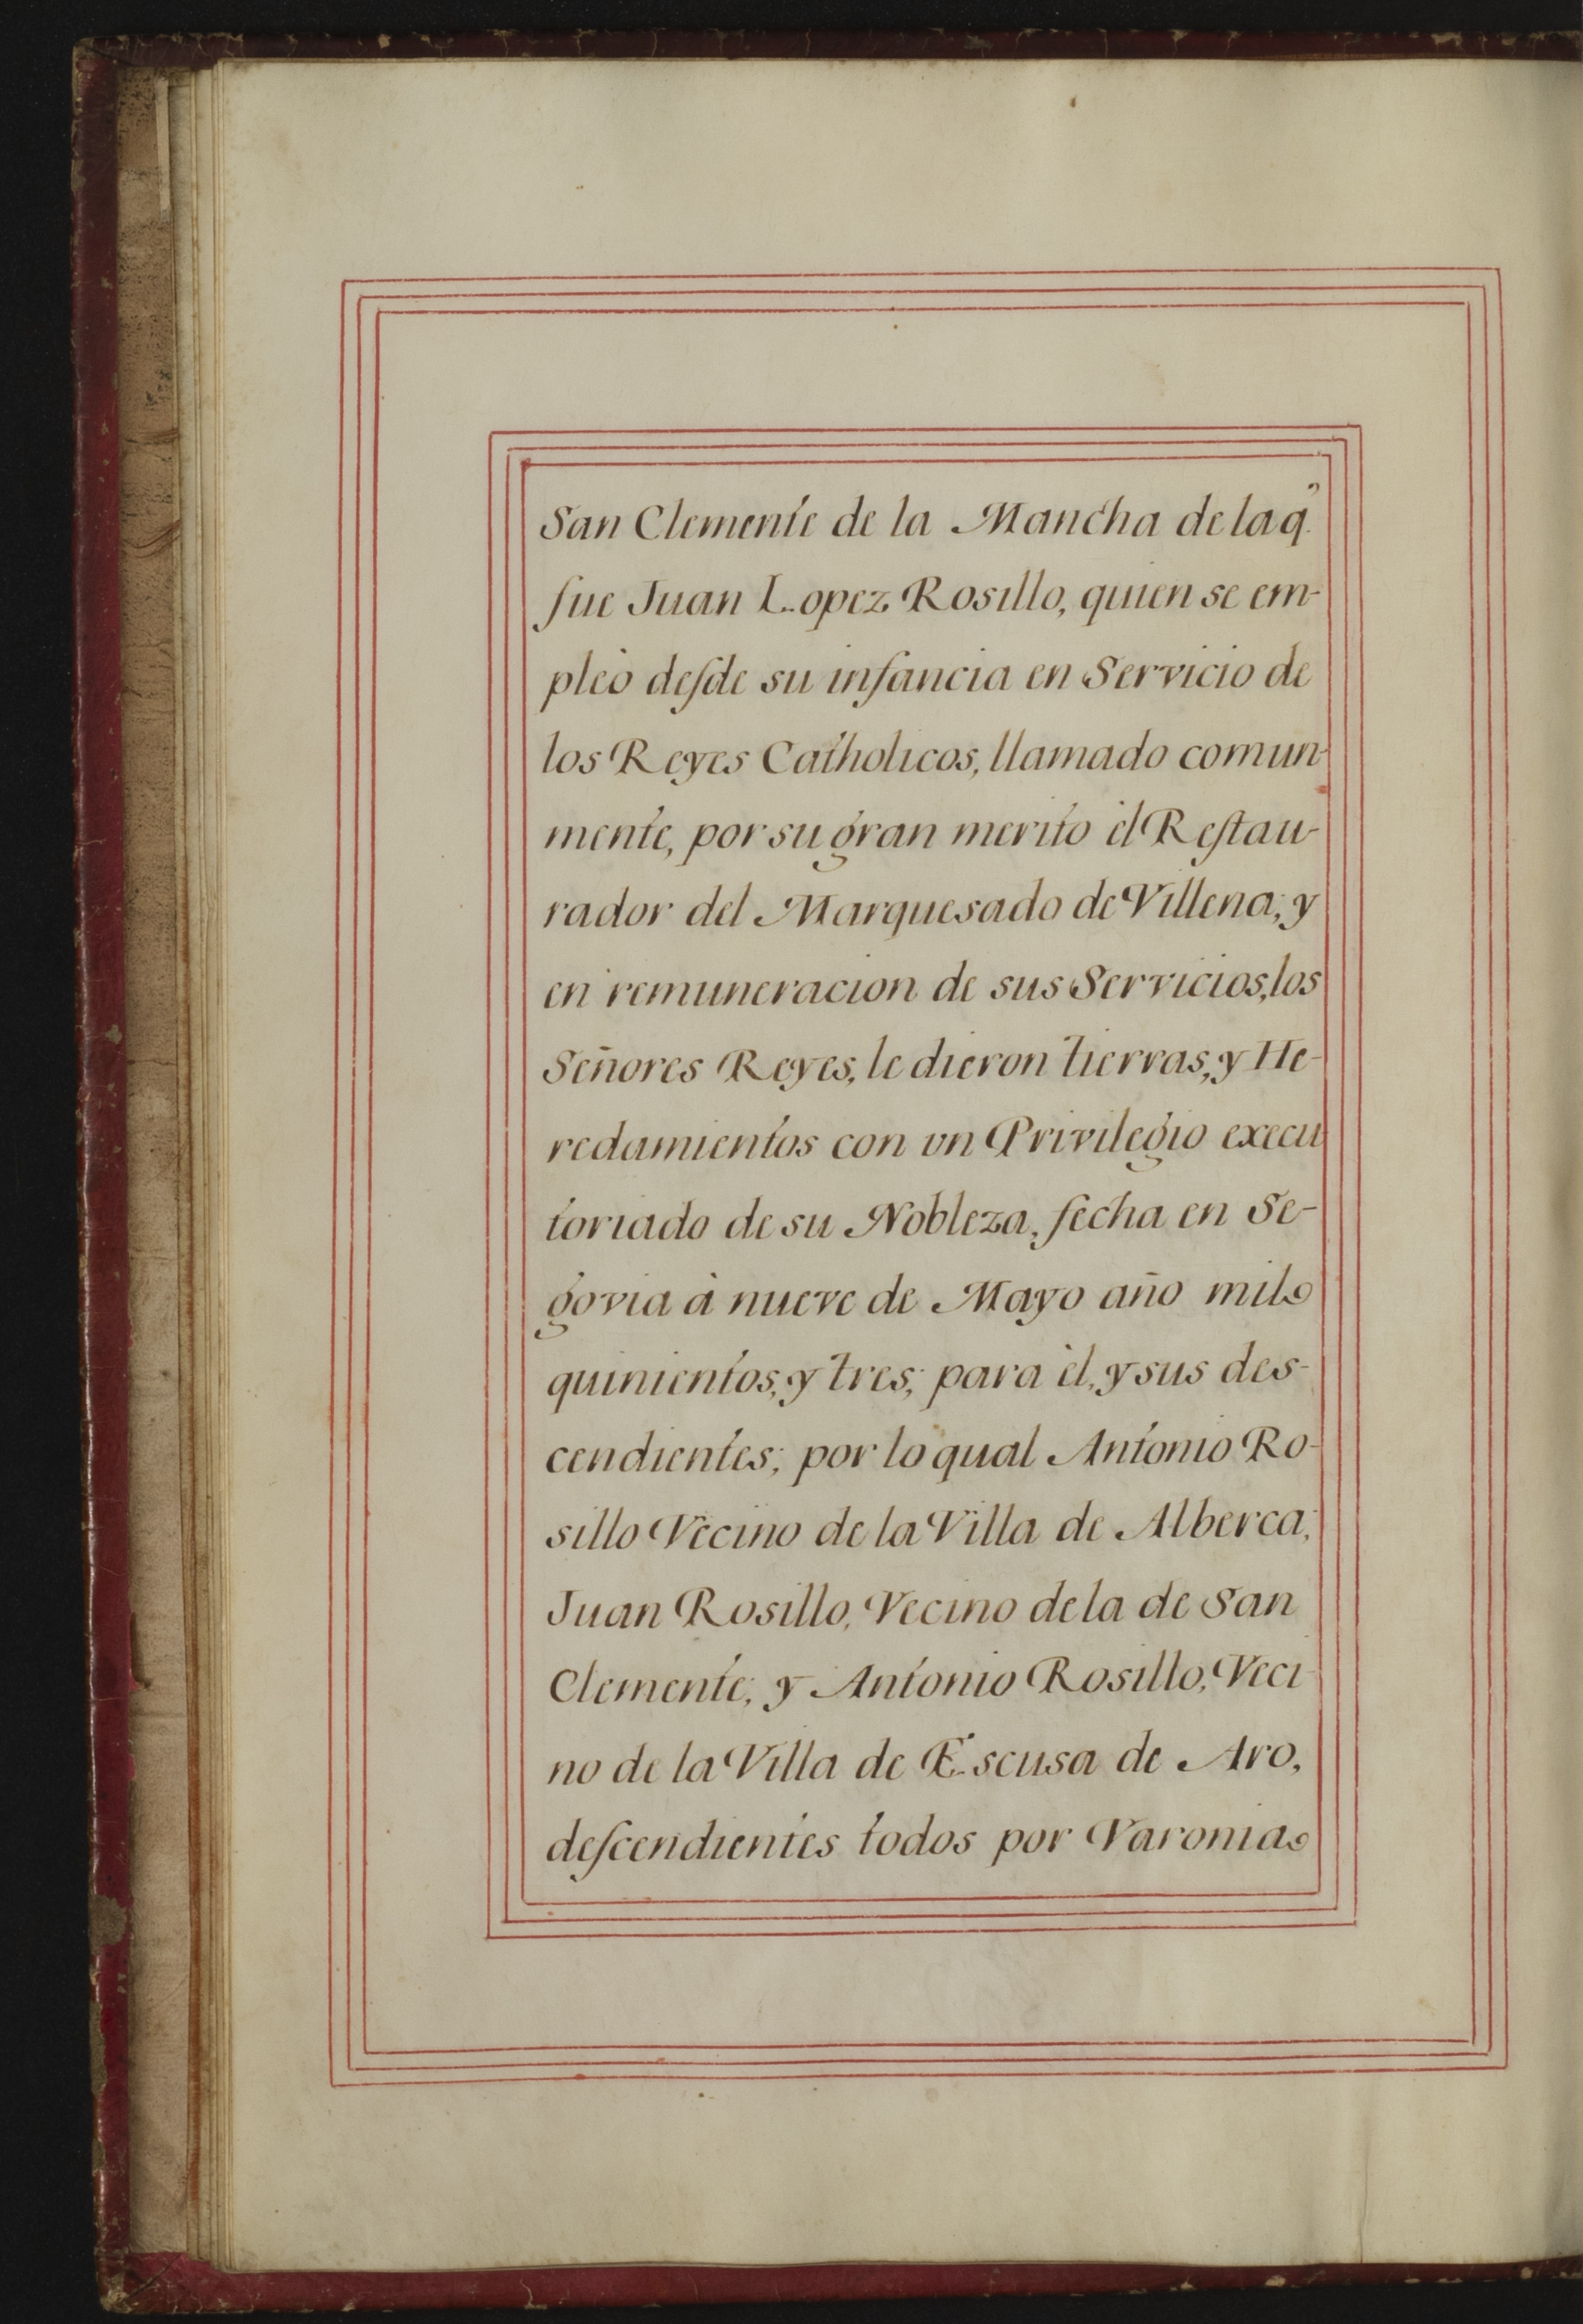 San Clemente de la Mancha de la q.
fue Juan Lopez Rosillo, quien se em-
pleò desde su infancia en Servicio de
los Reyes Catholicos, llamado comun-
mente, por su gran merito èl Restau-
rador del Marquesado de Villena; y
en remuneracion de sus Servicios, los
Señores Reyes, le dieron tierras, y He-
redamientos con vn Privilegio execu
toriado de su Nobleza, fecha en Se-
govia à nueve de Mayo año mil
quinientos, y tres; para èl, y sus des-
cendientes; por lo qual Antonio Ro-
sillo Vecino de la Villa de Alberca;
Juan Rosillo, Vecino de la de San
Clemente; y Antonio Rosillo, Veci
no de la Villa de Escusa de Aro,
descendientes todos por Varonia